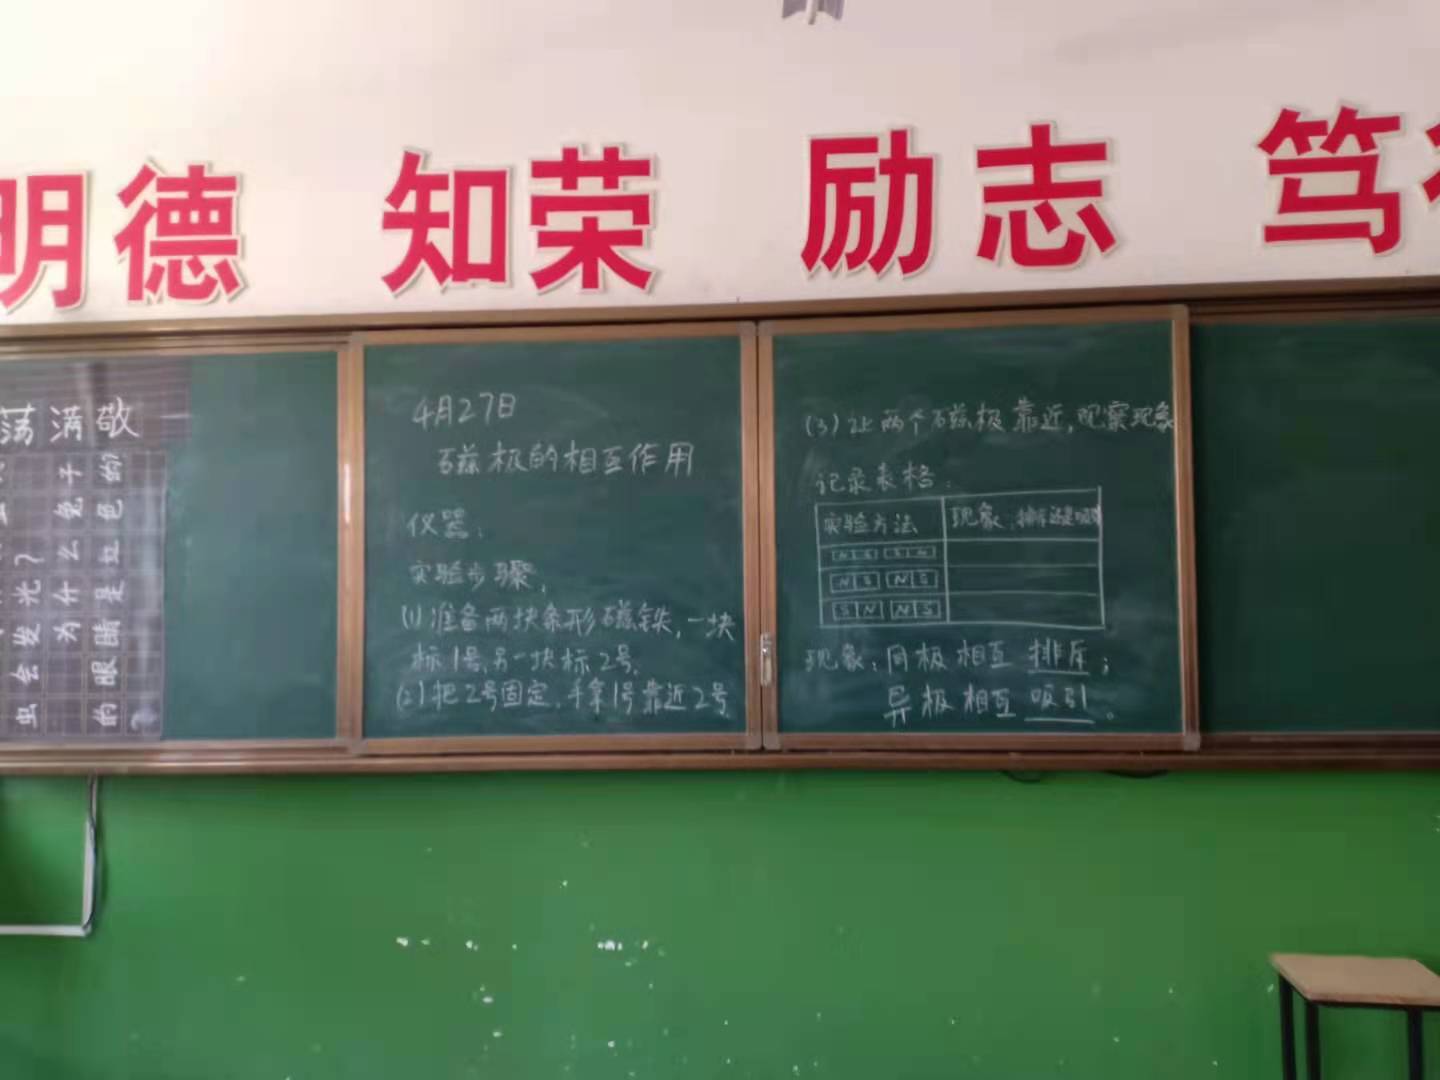 明德 知荣 励志 笃
荡满敬
4月27日
磁极的相互作用
仪器：
实验步骤：
(1)准备两块条形磁铁，一块
标1号，另一块标2号。
(2)把2号固定，手拿1号靠近2号
(3)让两个磁极靠近，观察现象
记录表格：
实验方法 现象：排斥还是吸引
N S S N
N S N S
S N N S
现象：同极相互 排斥；
异极相互 吸引。
子兔么什为
的色红是睛眼的
？光发会虫